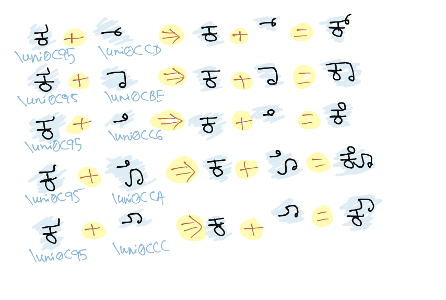 ಕ + ್ ⇒ ಕ + ್ = ಕ್
\uni0C95 \uni0CCD
ಕ + ಾ ⇒ ಕ + ಾ = ಕಾ
\uni0C95 \uni0CBE
ಕ + ೆ ⇒ ಕ + ೆ = ಕೆ
\uni0C95 \uni0CC6
ಕ + ೊ ⇒ ಕ + ೊ = ಕೊ
\uni0C95 \uni0CCA
ಕ + ೌ ⇒ ಕ + ೌ = ಕೌ
\uni0C95 \uni0CCC